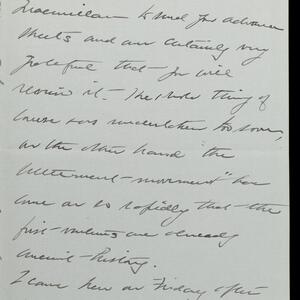 Macmillan to send you advance
sheets and am certainly very
grateful that you will
review it. The whole thing of
course was undertaken too soon,
on the other hand the
"betterment-movement" has
come on so rapidly that the
first-ventures are already
ancient-history.
I came here on Friday after